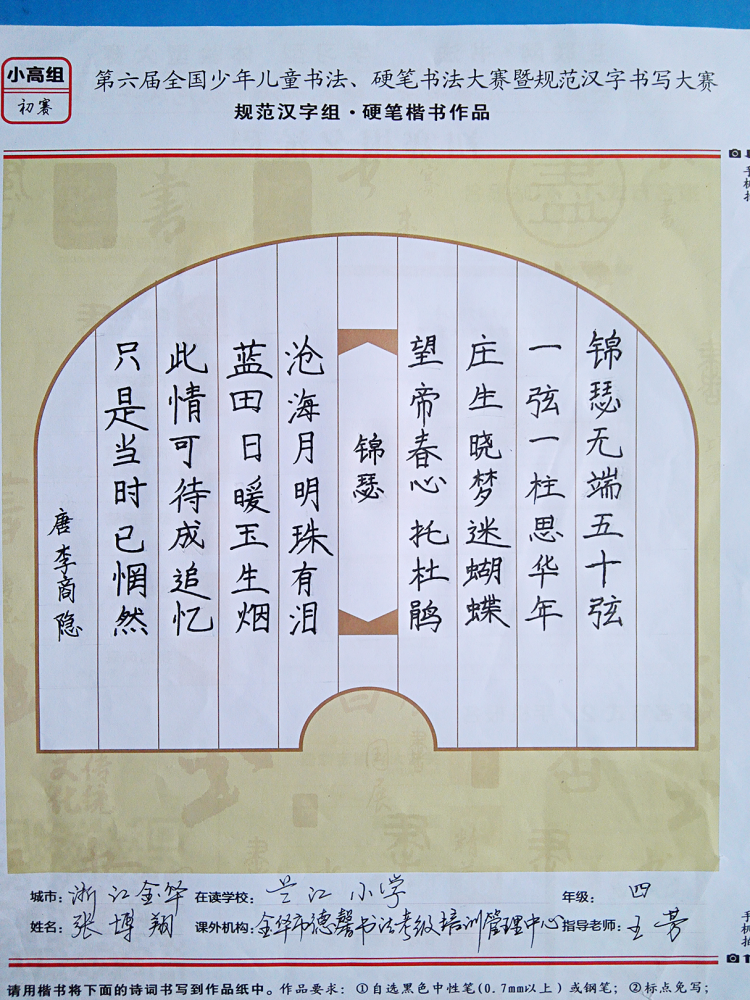 小高组
初赛
第六届全国少年儿童书法、硬笔书法大赛暨规范汉字书写大赛
规范汉字组·硬笔楷书作品
锦瑟无端五十弦
一弦一柱思华年
庄生晓梦迷蝴蝶
望帝春心托杜鹃
锦瑟
沧海月明珠有泪
蓝田日暖玉生烟
此情可待成追忆
只是当时已惘然
唐李商隐
城市：浙江金华 在读学校：兰江小学 年级：四
姓名：张博翔 课外机构：金华市德馨书法考级培训管理中心 指导老师：王芳
请用楷书将下面的诗词书写到作品纸中。作品要求：①自选黑色中性笔(0.7mm以上)或钢笔；②标点免写；